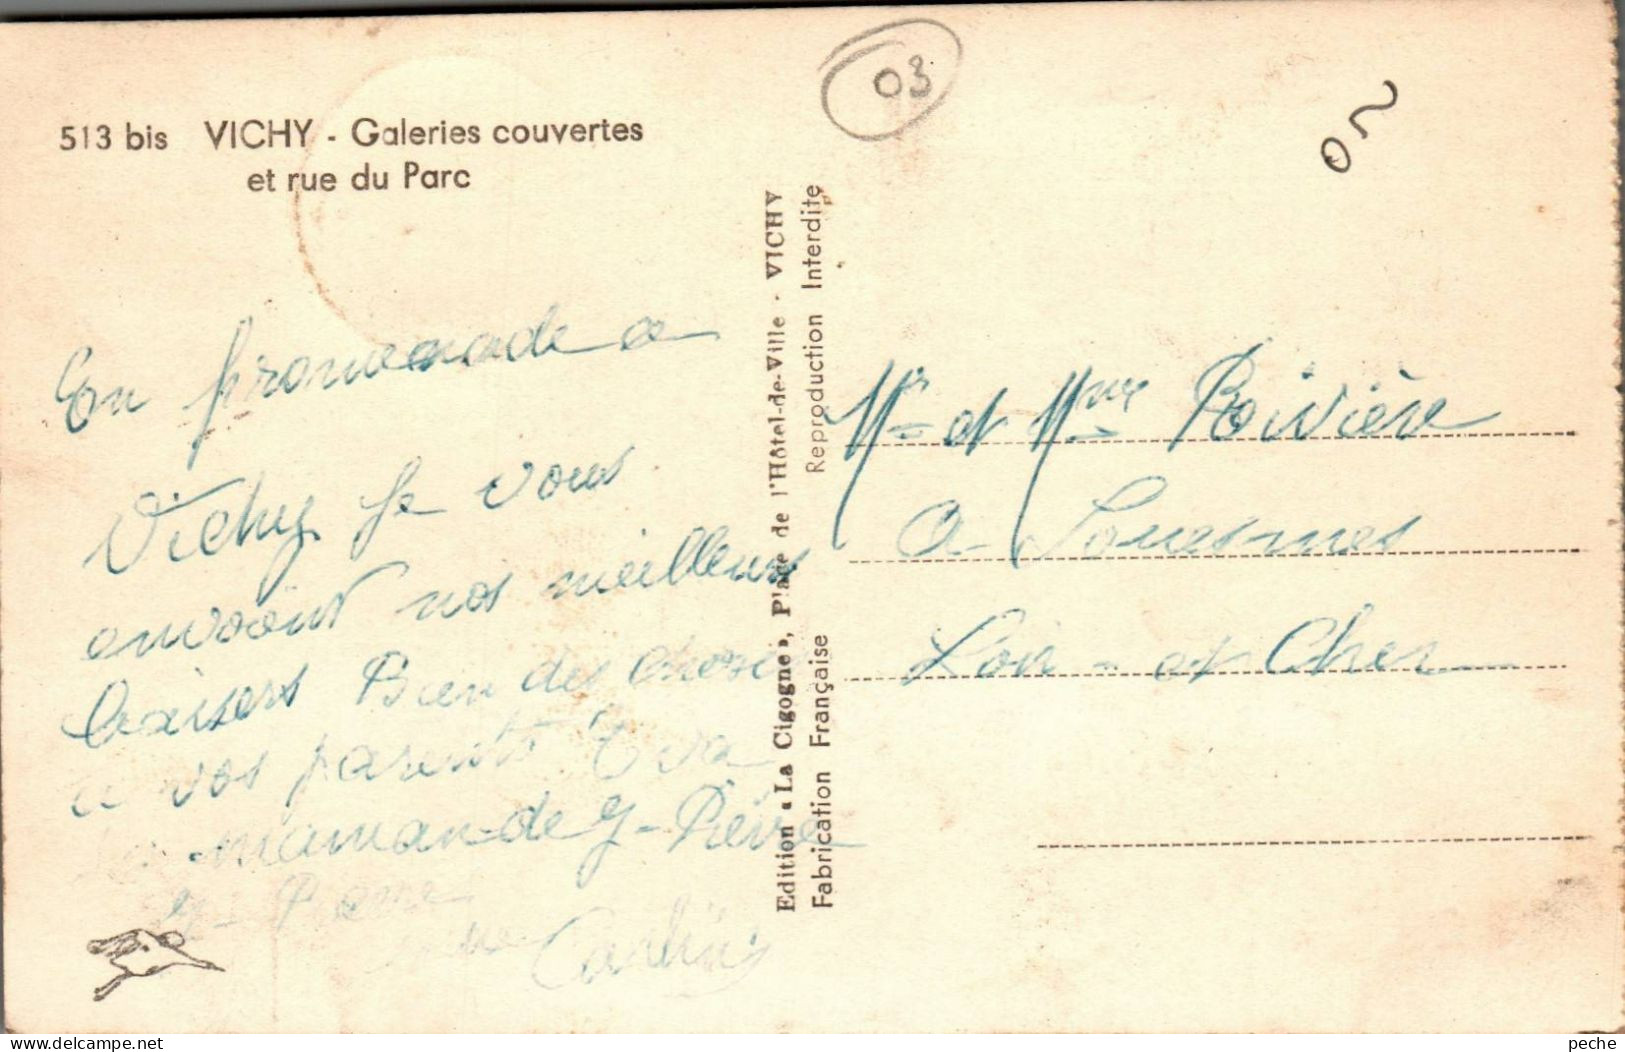 513 bis VICHY - Galeries couvertes
et rue du Parc
03
En promenade a
Vichy Je vous
envoént nos meilleurs
baisers Bien des choses
a vos parents Eva
maman de J-Pierre
J-Pierre
Edition « La Cigogne », Place de l'Hôtel-de-Ville - VICHY
Reproduction Interdite
Fabrication Française
Mr et Mme Roivière
a Souesmes
Loir-et Cher
peche